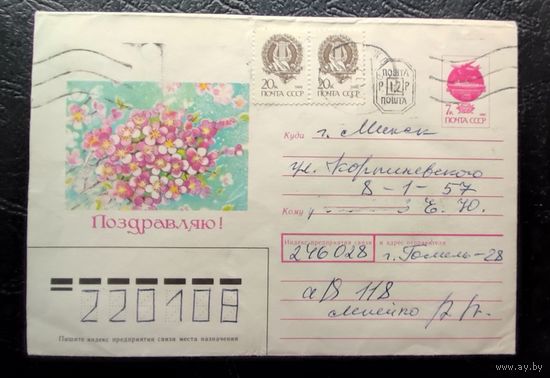 20к 1988
ПОЧТА СССР
20к 1988
ПОЧТА СССР
ПОШТА
Р 12 Р
ПОШТА
7к
ПОЧТА СССР
Поздравляю!
Куда г. Минск
ул. Корженевского
8-1-57
Кому Е. Ю.
Индекс предприятия связи и адрес отправителя
246028 г. Гомель-28
а/я 118
220108
Пишите индекс предприятия связи места назначения
www.ay.by